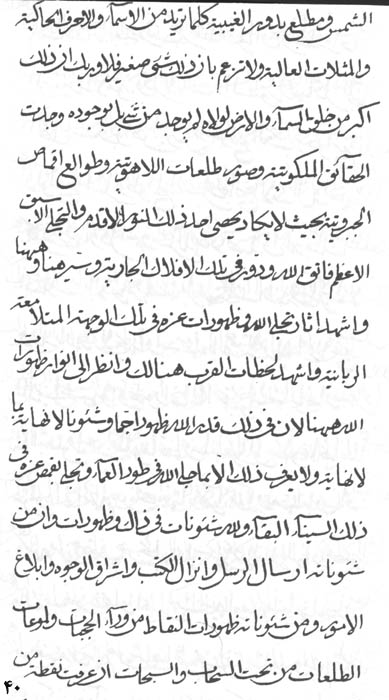 الشمس ومطلع بدور الغيبية كلما تريد من الاسمآء والاحرف الحاكية
والمثلات العالية ولا تزعم بان ذلك شئ صغير فلا وربك ان ذلك
اكبر من خلق السمآء والارض لولاه لم يوجد من شئ بل بوجوده وجدت
الحقآئق الملكوتية وصور طلعات اللاهوتية وطوالع اقماص
الجبروتية بحيث لا يكاد يحصى احد ذلك النور الاقدم والتجلى الاسبق
الاعظم فاتق الله ودور فى تلك الافلاك الجارية وسير هنا وههنا
واشهد اثار تجلى الله وظهورات عزه فى تلك الوجهة المتلامعة
الربانية واشهد لحظات القرب هنالك وانظر الى انوار ظهورات
الله ههنا لان فى ذلك قدر الله ظهورا جما وشئونا لا نهاية بما
لا نهاية ولا يعرف ذلك الا بما جلى الله فى طور العمآء وتجلى بقمص عزه فى
ذلك السينآء البقآء ولله شئونات فى ذلك وظهورات وان من
شئوناته ارسال الرسل وانزال الكتب واشراق الوجوه وابلاغ
الامور ومن شئوناته ظهورات النقاط من ورآء الحجبات ولموعات
الطلعات من تحت السحاب والسبحات اذ عرفت نقطة من
۴۰